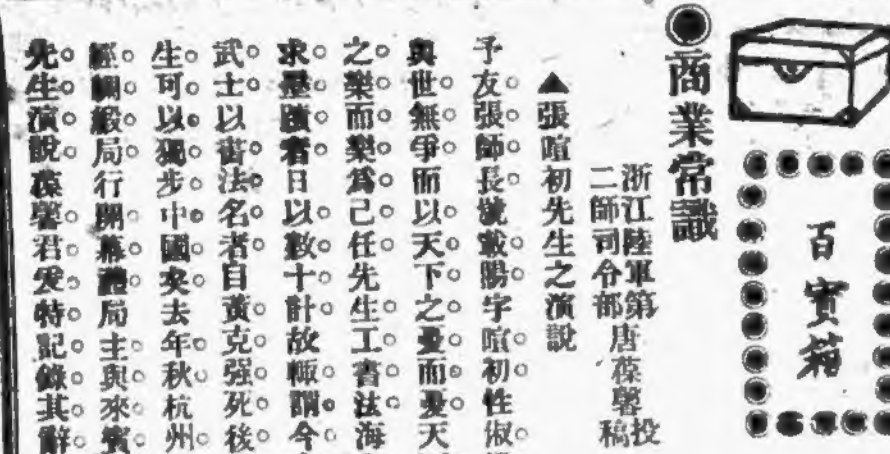 百寶箱
●商業常識
浙江陸軍第二師司令部 唐葆馨 投稿
▲張暄初先生之演說
予友張師長號載陽字暄初性俶
與世無爭而以天下之憂而憂天
之樂而樂爲己任先生工書法海
求墨蹟者日以數十計故輒謂今
武士以書法名者自黃克强死後
生可以獨步中國矣去年秋杭州
經綢緞局行開幕禮局主與來賓
先生演說葆馨君爰特記錄其辭